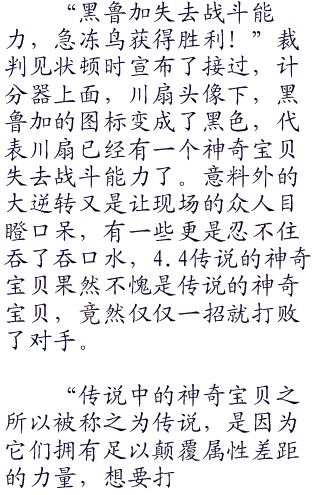 “黑鲁加失去战斗能
力，急冻鸟获得胜利！”裁
判见状顿时宣布了接过，计
分器上面，川扇头像下，黑
鲁加的图标变成了黑色，代
表川扇已经有一个神奇宝贝
失去战斗能力了。意料外的
大逆转又是让现场的众人目
瞪口呆，有一些更是忍不住
吞了吞口水，4.4传说的神奇
宝贝果然不愧是传说的神奇
宝贝，竟然仅仅一招就打败
了对手。
“传说中的神奇宝贝之
所以被称之为传说，是因为
它们拥有足以颠覆属性差距
的力量，想要打